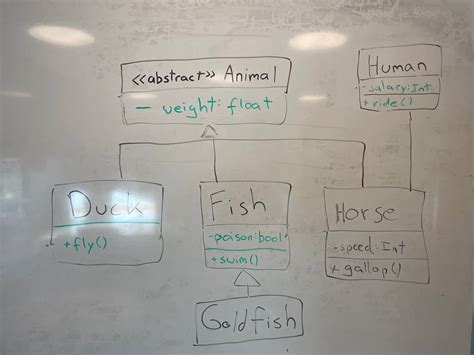 <<abstract>> Animal
- weight: float
Human
-salary:Int
+ride()
Duck
+fly()
Fish
-poison:bool
+swim()
Horse
-speed:Int
+gallop()
Goldfish